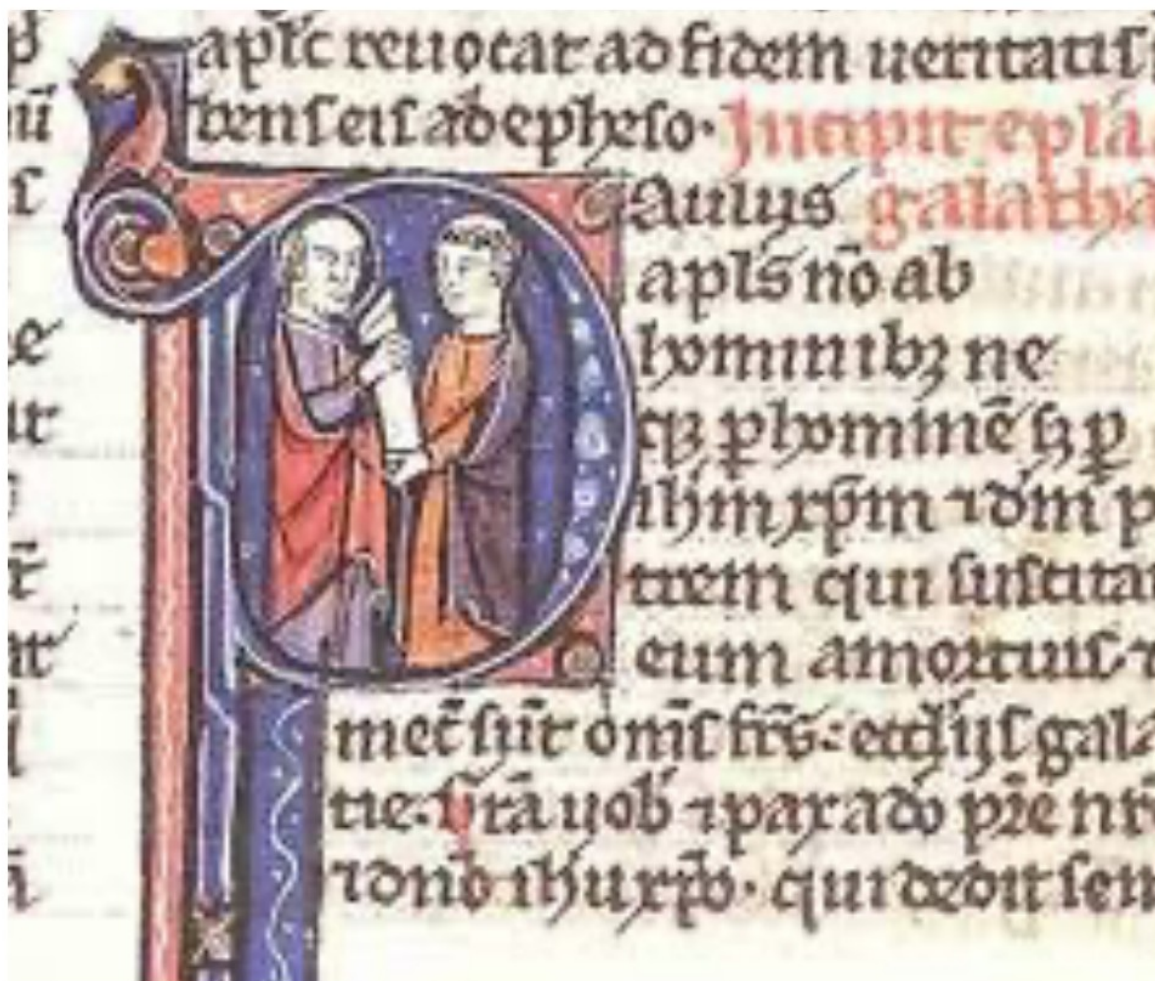 apl'c reuocat ad fidem ueritatis
bens eis ab epheso. Incipit epl'a
Paulus galatha
apl's nō ab
hominibꝫ ne
qꝫ ꝑ hominē sꝫ ꝑ
ihm xp̄m ⁊ dm̄ p
trem qui suscita
eum a mortuis. ⁊
mec̄ sūt om̄s fr̄s: eccl'ijs gala
tie. Gr̄a uob' ⁊ pax a dō pr̄e nr̄
⁊ dn̄o ihu xp̄o. qui dedit sem